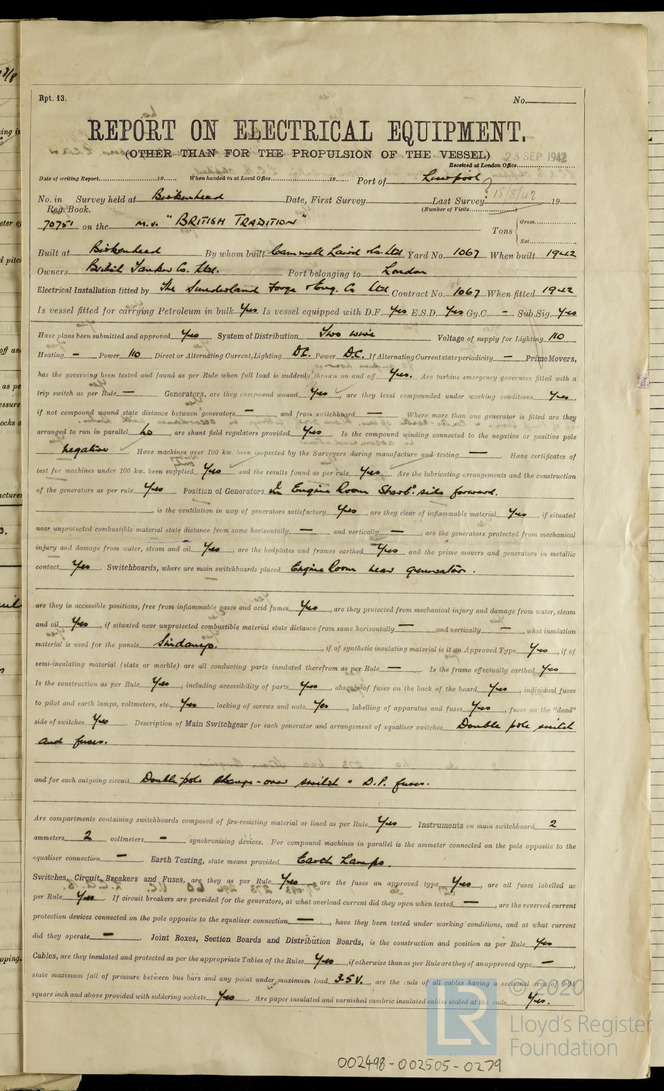 Rpt. 13.
No.
REPORT ON ELECTRICAL EQUIPMENT.
(OTHER THAN FOR THE PROPULSION OF THE VESSEL)
23 SEP 1942
Received at London Office
Date of writing Report 19 When handed in at Local Office 19 Port of Liverpool
No. in Survey held at Birkenhead Date, First Survey Last Survey 15/8/42 19
Reg. Book. (Number of Visits)
70751 on the m.v. "BRITISH TRADITION" Tons Gross
Net
Built at Birkenhead By whom built Cammell Laird & Co. Ltd Yard No. 1067 When built 1942
Owners British Tanker Co. Ltd. Port belonging to London
Electrical Installation fitted by The Sunderland Forge & Eng. Co Ltd Contract No. 1067 When fitted 1942
Is vessel fitted for carrying Petroleum in bulk Yes Is vessel equipped with D.F. Yes E.S.D. Yes Gy.C. – Sub.Sig. Yes
Have plans been submitted and approved Yes System of Distribution Two wire Voltage of supply for Lighting 110
Heating – Power 110 Direct or Alternating Current, Lighting D.C. Power D.C. If Alternating Current state periodicity – Prime Movers,
has the governing been tested and found as per Rule when full load is suddenly thrown on and off Yes. Are turbine emergency governors fitted with a
trip switch as per Rule – Generators, are they compound wound Yes, are they level compounded under working conditions Yes,
if not compound wound state distance between generators – and from switchboard – Where more than one generator is fitted are they
arranged to run in parallel no, are shunt field regulators provided Yes Is the compound winding connected to the negative or positive pole
negative Have machines over 100 kw. been inspected by the Surveyors during manufacture and testing – Have certificates of
test for machines under 100 kw. been supplied Yes and the results found as per rule Yes Are the lubricating arrangements and the construction
of the generators as per rule Yes Position of Generators In Engine Room Starb. side forward.
is the ventilation in way of generators satisfactory Yes are they clear of inflammable material Yes, if situated
near unprotected combustible material state distance from same horizontally – and vertically –, are the generators protected from mechanical
injury and damage from water, steam and oil Yes, are the bedplates and frames earthed Yes and the prime movers and generators in metallic
contact Yes Switchboards, where are main switchboards placed Engine Room near generators.
are they in accessible positions, free from inflammable gases and acid fumes Yes, are they protected from mechanical injury and damage from water, steam
and oil Yes, if situated near unprotected combustible material state distance from same horizontally – and vertically –, what insulation
material is used for the panels Sindanyo., if of synthetic insulating material is it an Approved Type Yes, if of
semi-insulating material (slate or marble) are all conducting parts insulated therefrom as per Rule – Is the frame effectually earthed Yes
Is the construction as per Rule Yes, including accessibility of parts Yes, absence of fuses on the back of the board Yes, individual fuses
to pilot and earth lamps, voltmeters, etc., Yes, locking of screws and nuts Yes, labelling of apparatus and fuses Yes, fuses on the "dead"
side of switches Yes Description of Main Switchgear for each generator and arrangement of equaliser switches Double pole switch
and fuses.
and for each outgoing circuit Double pole change-over switch & D.P. fuses.
Are compartments containing switchboards composed of fire-resisting material or lined as per Rule Yes Instruments on main switchboard 2
ammeters 2 voltmeters – synchronising devices. For compound machines in parallel is the ammeter connected on the pole opposite to the
equaliser connection – Earth Testing, state means provided Earth Lamps.
Switches, Circuit Breakers and Fuses, are they as per Rule Yes, are the fuses an approved type Yes, are all fuses labelled as
per Rule Yes. If circuit breakers are provided for the generators, at what overload current did they open when tested –, are the reversed current
protection devices connected on the pole opposite to the equaliser connection –, have they been tested under working conditions, and at what current
did they operate – Joint Boxes, Section Boards and Distribution Boards, is the construction and position as per Rule Yes
Cables, are they insulated and protected as per the appropriate Tables of the Rules Yes, if otherwise than as per Rule are they of an approved type –
state maximum fall of pressure between bus bars and any point under maximum load 3.5V., are the ends of all cables having a sectional area of 0.04
square inch and above provided with soldering sockets Yes. Are paper insulated and varnished cambric insulated cables sealed at the ends Yes.
© 2020
LR Lloyd's Register
Foundation
002498-002505-0279